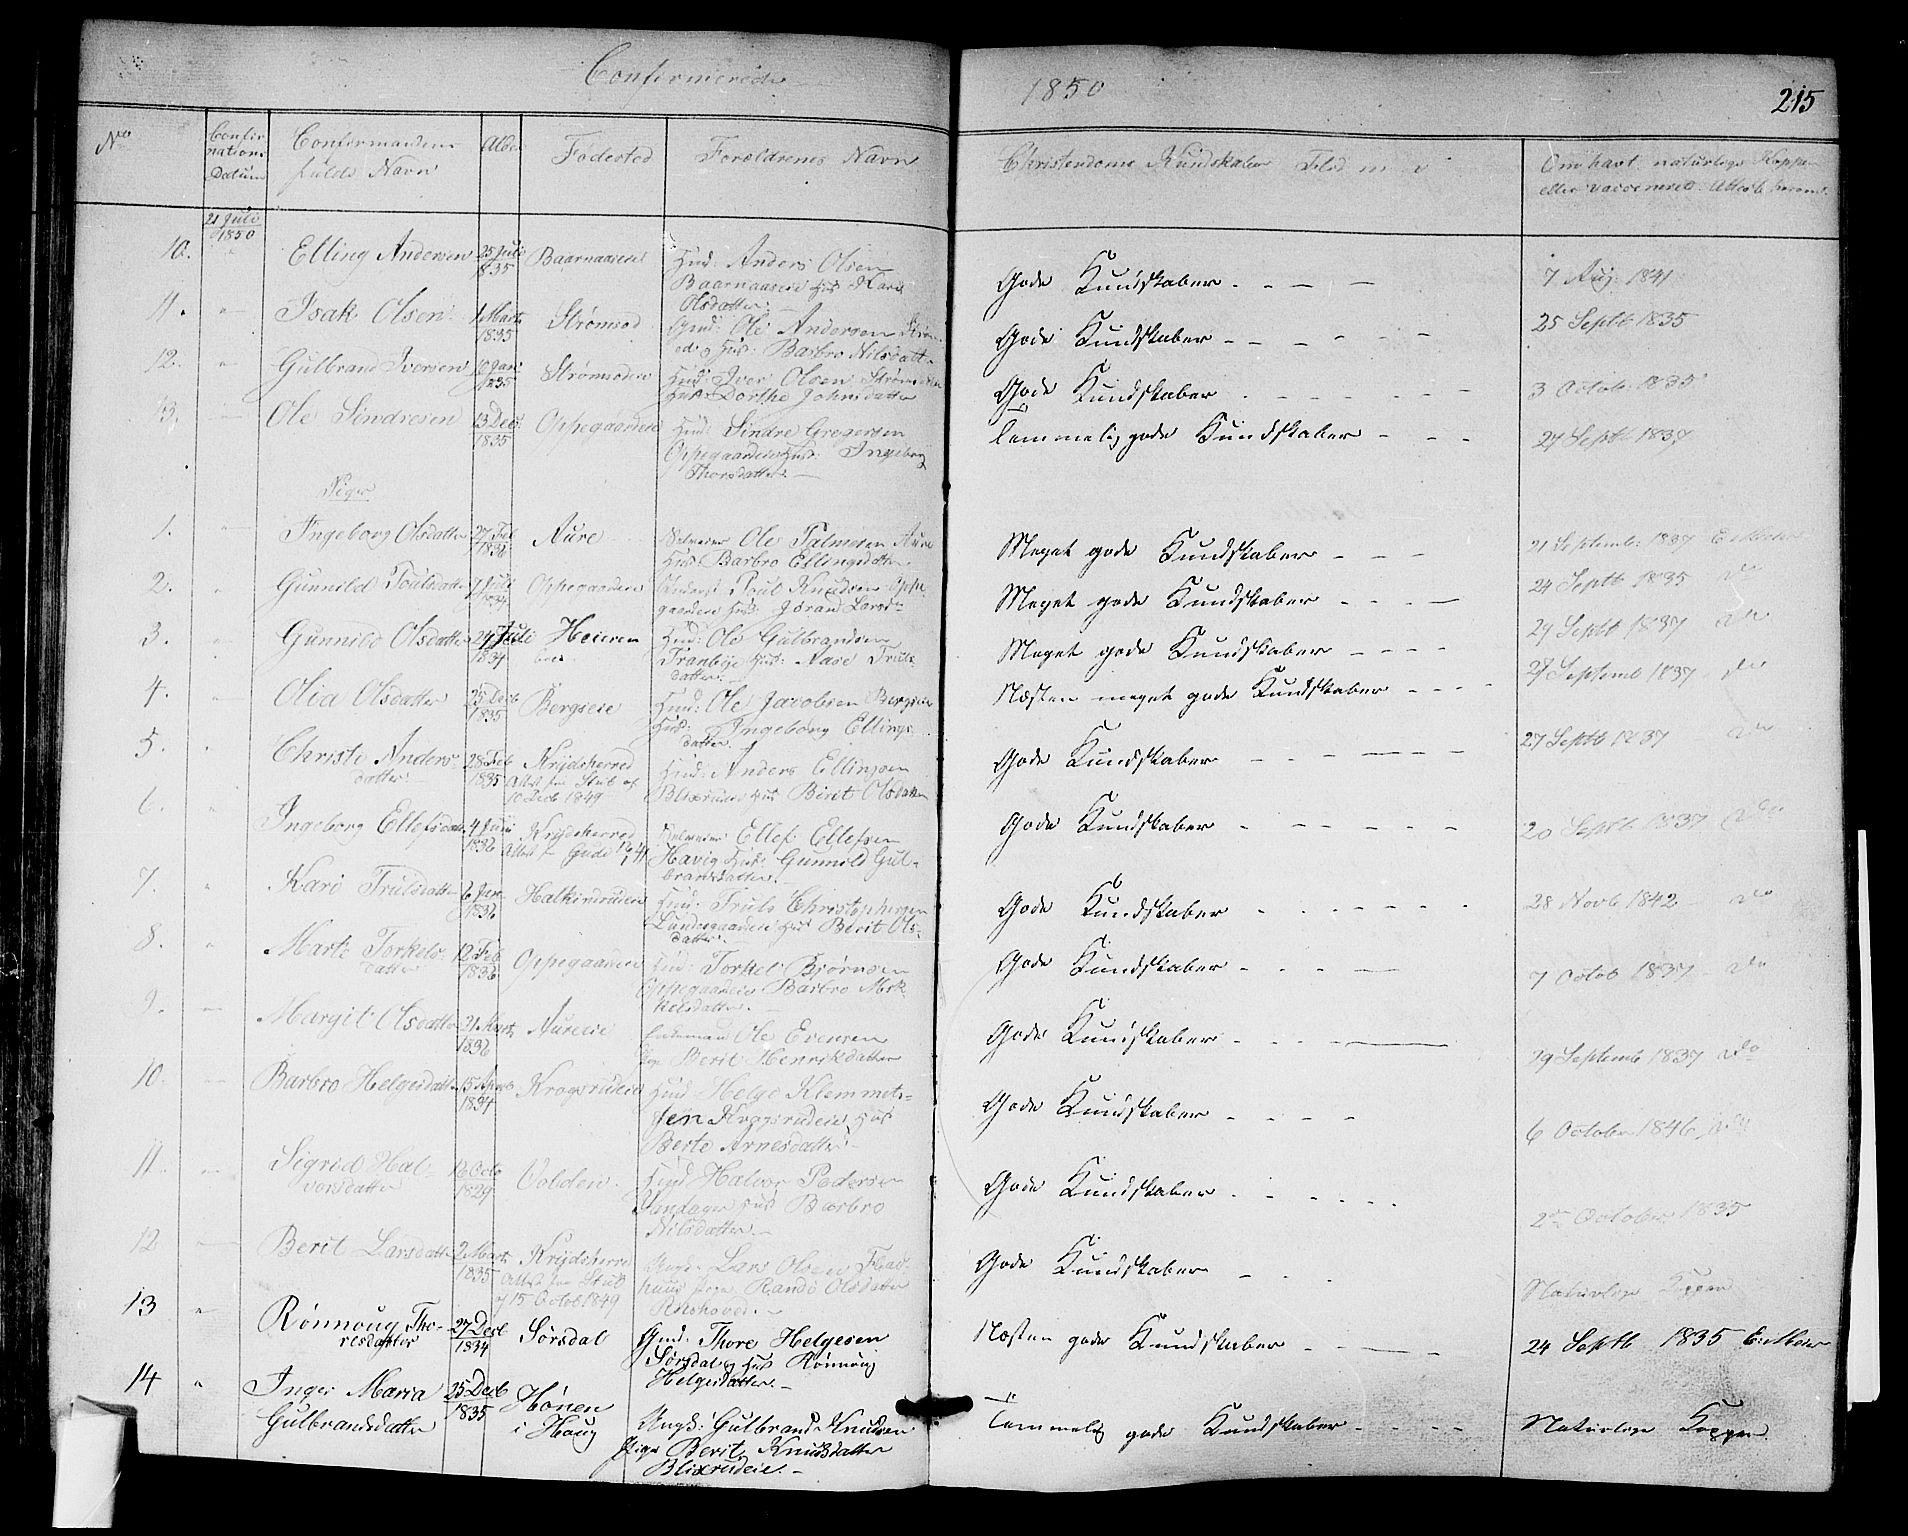 Confirmerede
1850
215
No
Confir
nations
Datum
Confirmandens
fulde Navn
Alder
Fødested
Forældrenes Navn
Christendoms Kundskaber
Om havt naturlige Kopper
eller vaccineret
21 Juli
1850
10. " Elling Andersen 25 Juli 1835 Baarnaaseie Huus: Anders Olsen
Baarnaaseie Hus Kari
Olsdatter. Gode Kundskaber. 7 Aug 1841
11. " Isak Olsen 1 Marts 1835 Strømsod Gmd: Ole Andersen Strøm
od og Hus: Barbro Nilsdatter Gode Kundskaber 25 Septb 1835
12. " Gulbrand Iversen 10 Jan 1835 Strømsodeie Huus: Iver Olsen
Hus Dorthe Johnsdatter Gode Kundskaber 3 Octob 1835
13. Ole Sindresen 13 Dec 1835 Oppegaardeie Huus: Sindre Gregersen
Oppegaardeie Hus: Ingeborg
Thorsdatter. Temmelig gode Kundskaber 27 Septb 1837
Piger
1. " Ingeborg Olsdatter 27 Feb Aure Selveier Ole Palmesen Aure
Hus Barbro Ellingsdatter Meget gode Kundskaber 21 Septemb: 1837
2. " Gunnild Poulsdatter 7 Juli 1834 Oppegaardeie Poul Knudsen Oppe
gaardeie Hus: Jøran Larsd Meget gode Kundskaber 24 Septb 1835 do
3. " Gunnild Olsdatter 24 Juli 1834 Heieren
Huus: Ole Gulbrandsen
Tranbye Hus: Aase Truls
datter. Meget gode Kundskaber 29 Septb 1837 do
4. Olia Olsdatter 25 Decb 1835 Bergseie Huus: Ole Jacobsen Bergseie
Hus: Ingeborg Ellings
datter. Næsten meget gode Kundskaber 27 Septemb 1837 do
5. " Christi Anders
datter 28 Feb 1835 Krydsherred
Attest fra Stub af
10 Decb 1849 Huus: Anders Ellingsen
Blixrudeie Hus Berit Olsdatter Gode Kundskaber 27 Septb 1837 do
6. " Ingeborg Ellefsdatter 4 Juni 1836 Krydsherred
Selveier Ellef Ellefsen
Havig Hus: Gunnild Gul-
brandsdatter. Gode Kundskaber 20 Septb 1837 do
7. " Kari Trulsdatter 6 Jan 1836 Halkinrudeie Huus: Truls Christophersen
Lundesgaardeie Hus Berit Ols-
datter. Gode Kundskaber 28 Novb 1842 do
8. " Marte Torkels
datter 12 Feb 1836 Oppegaardeie Huus: Torkel Bjørnsen
Oppegaardeie Barbro Mik
kelsdatter. Gode Kundskaber 7 Octob 1837 do
9. Margit Olsdatter 21 Marts 1836 Aureeie Enkemand Ole Evensen
Pige Berit Henriksdatter Gode Kundskaber 29 Septemb 1837 do
10. Barbro Helgesdatter 15 1834 Krogsrudeie Huus Helge Klemmet-
sen Krogsrudeie Hus
Berte Arnesdatter Gode Kundskaber 6 October 1846 do
11. Sigrid Hal-
vorsdatter 12 Octb 1829 Volden Huus Halvor Pedersen
Hus Barbro
Nilsdatter. Gode Kundskaber 2 October 1835
12 Berit Larsdatter 2 Marts 1835 Krydsherred
Attest fra Stub
15 Octob 1849 Ungk: Lars Olsen
Pige Randi Olsdatter
Gode Kundskaber Naturlige Kopper
13 " Rønnoug Tho-
resdatter 27 Decb 1834 Sørsdal Gmd: Thore Helgesen
Sørsdal og Hus Rønnoug
Helgesdatter. Næsten gode Kundskaber 24 Septb 1835
14 " Inger Maria
Gulbrandsdatter 25 Decb 1835 Hønen
i Houg Ungk: Gulbrand Knudsen
Pige Berit Knudsdatter
Blixrudeie. Temmelig gode Kundskaber Naturlige Kopper